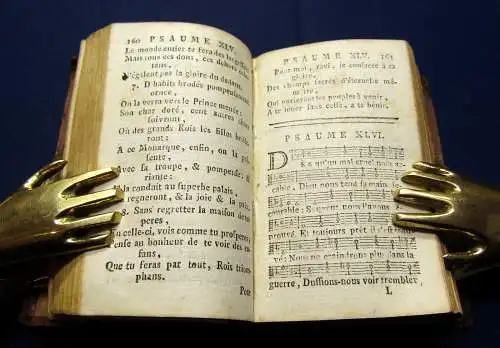 160 PSAUME XLV.
Le monde entier te fera des
Mais tous ces dons, ces dehors
N'égalent pas la gloire du dedans.
7. D'habits brodés pompeusement
On la verra vers le Prince menée:
Son cher doré, cent autres
Où des grands Rois les filles
ront:
A ce Monarque, enfin, on la
sente,
Avec sa troupe, & pompeuse, &
riante:
la conduit au superbe palais,
régneront, & la joie & la paix.
8. Sans regretter la maison de
peres,
celle-ci, vois comme tu prosperes,
au bonheur de te voir des
fans,
Que tu feras par tout, Rois triom-
phans.
Pour
PSAUME XLV. 161
Pour moi, ravi, je consacre à ta
gloire,
Des champs sacrés d'éternelle mé-
moire,
Qui porteront les peuples à venir,
A te louer sans cesse, à te bénir.
PSAUME XLVI.
Dès qu'un mal
cable, Dieu nous tend sa main
courable: Souvent nous l'avons
prouvé. Et toujours prêt il s'est
vé: Nous ne craindrons plus dans la
guerre, Dussions-nous voir trembler
L